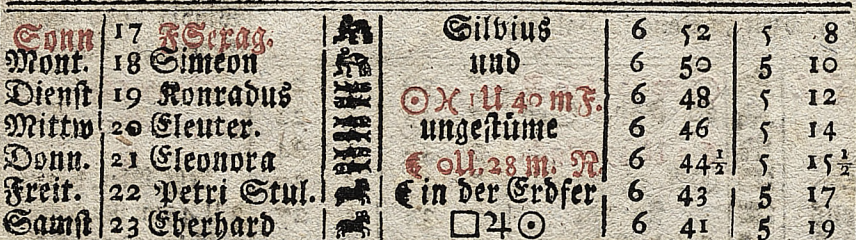 Sonn 17 F Sexag. Silvius 6 52 5 8
Mont. 18 Simeon und 6 50 5 10
Dienst 19 Konradus ☉ ♓ 1 U 40 m F. 6 48 5 12
Mittw 20 Eleuter. ungestüme 6 46 5 14
Donn. 21 Eleonora ☾ 0 U. 28 m. N. 6 44½ 5 15½
Freit. 22 Petri Stul. ☾ in der Erdfer 6 43 5 17
Samst 23 Eberhard □ ♃ ☉ 6 41 5 19